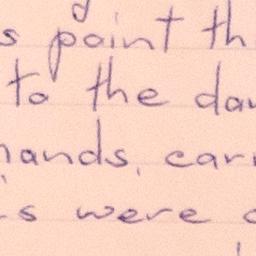 s point th
to the da
hands, car
is were